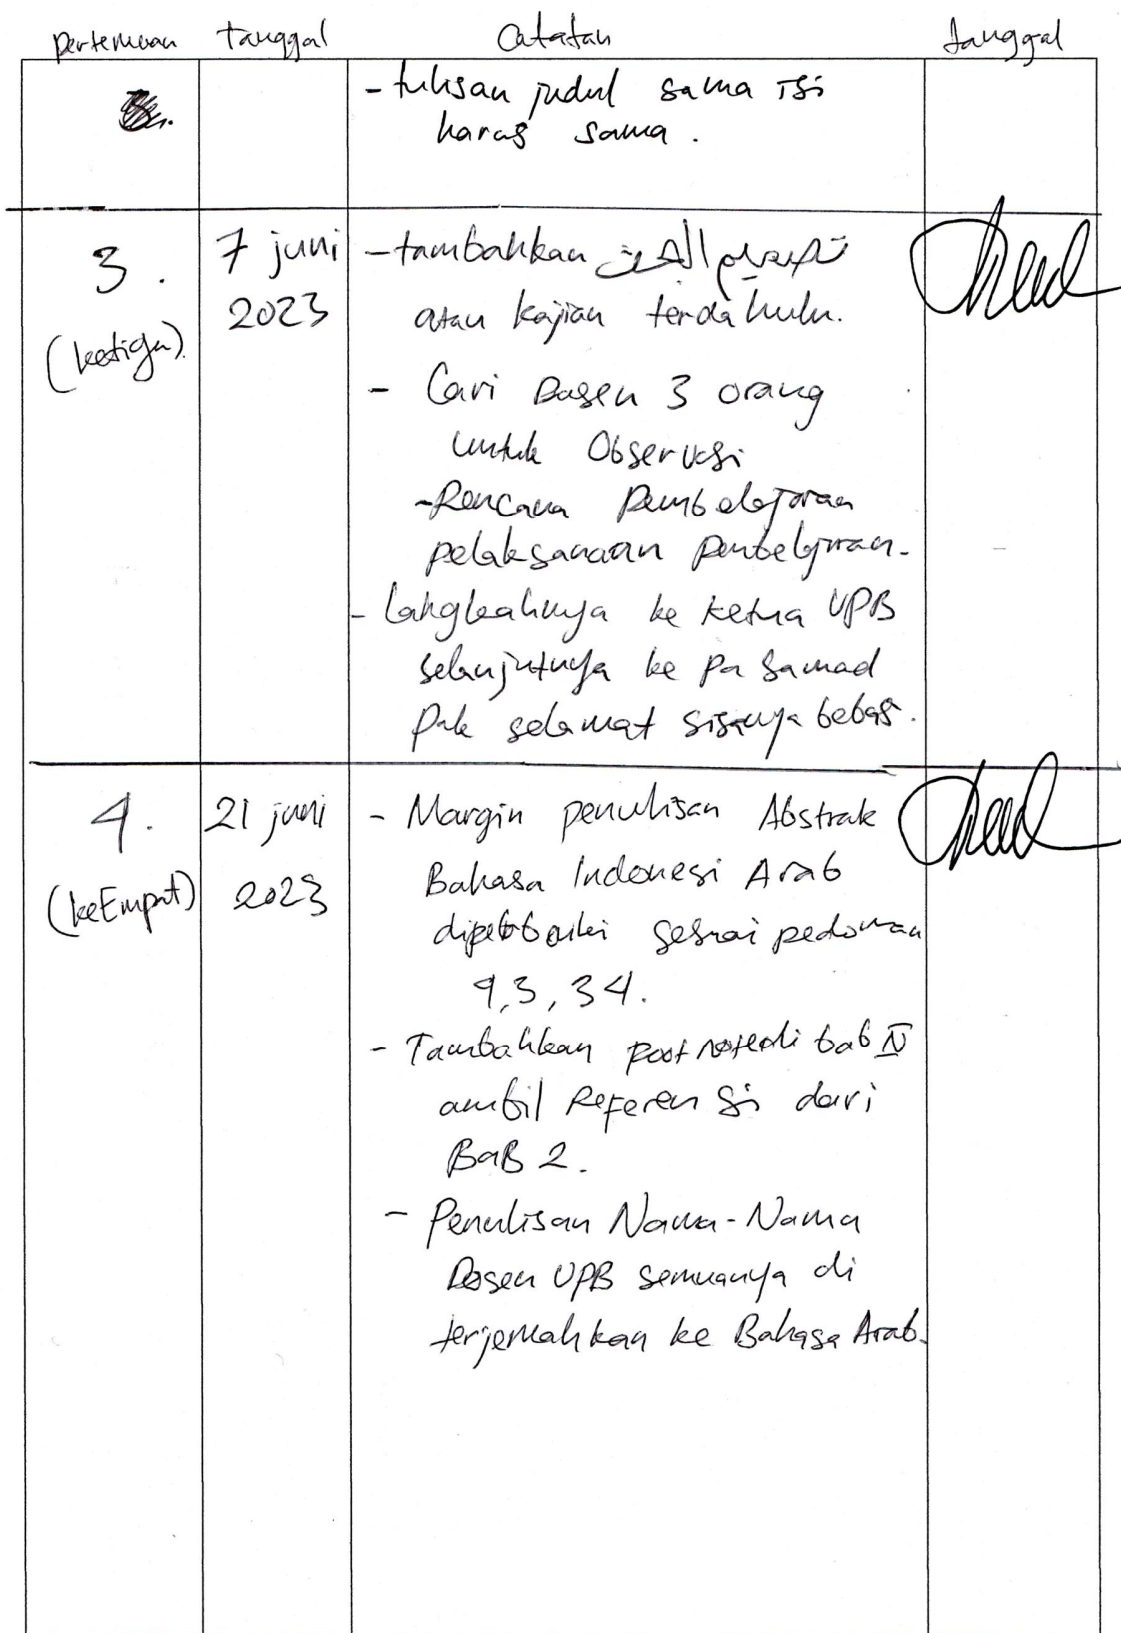 pertemuan tanggal Catatan tanggal
- tulisan judul sama isi
harus sama.
3. 7 juni - tambahkan
2023 atau kajian terdahulu.
(ketiga).
- Cari Dosen 3 orang
untuk Observasi
- Rencana Pembelajaran
pelaksanaan pembelajaran.
- Langkahnya ke Ketua UPB
selanjutnya ke Pa Samad
Pak selamat sisanya bebas.
4. 21 juni - Margin penulisan Abstrak
(keEmpat) 2023 Bahasa Indonesi Arab
sesuai pedoman
4,3,34.
- Tambahkan di bab IV
ambil Referensi dari
BaB 2.
- Penulisan Nama-Nama
Dosen UPB semuanya di
terjemahkan ke Bahasa Arab.